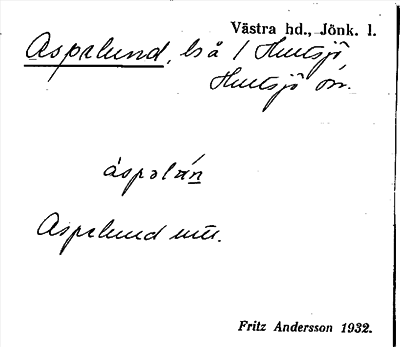 Västra hd., Jönk. l.
Aspelund, ls å 1 Hultsjö,
Hultsjö sn.
áspəlán
Aspelund utt.
Fritz Andersson 1932.